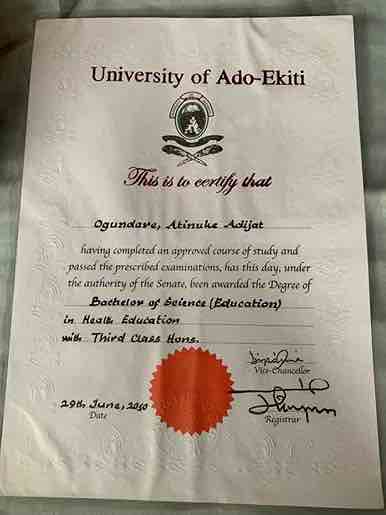 University of Ado-Ekiti
This is to certify that
Ogundare, Atinuke Adijat
having completed an approved course of study and
passed the prescribed examinations, has this day, under
the authority of the Senate, been awarded the Degree of
Bachelor of Science (Education)
in Health Education
with Third Class Hons.
Vice-Chancellor
29th June, 2010
Date
Registrar